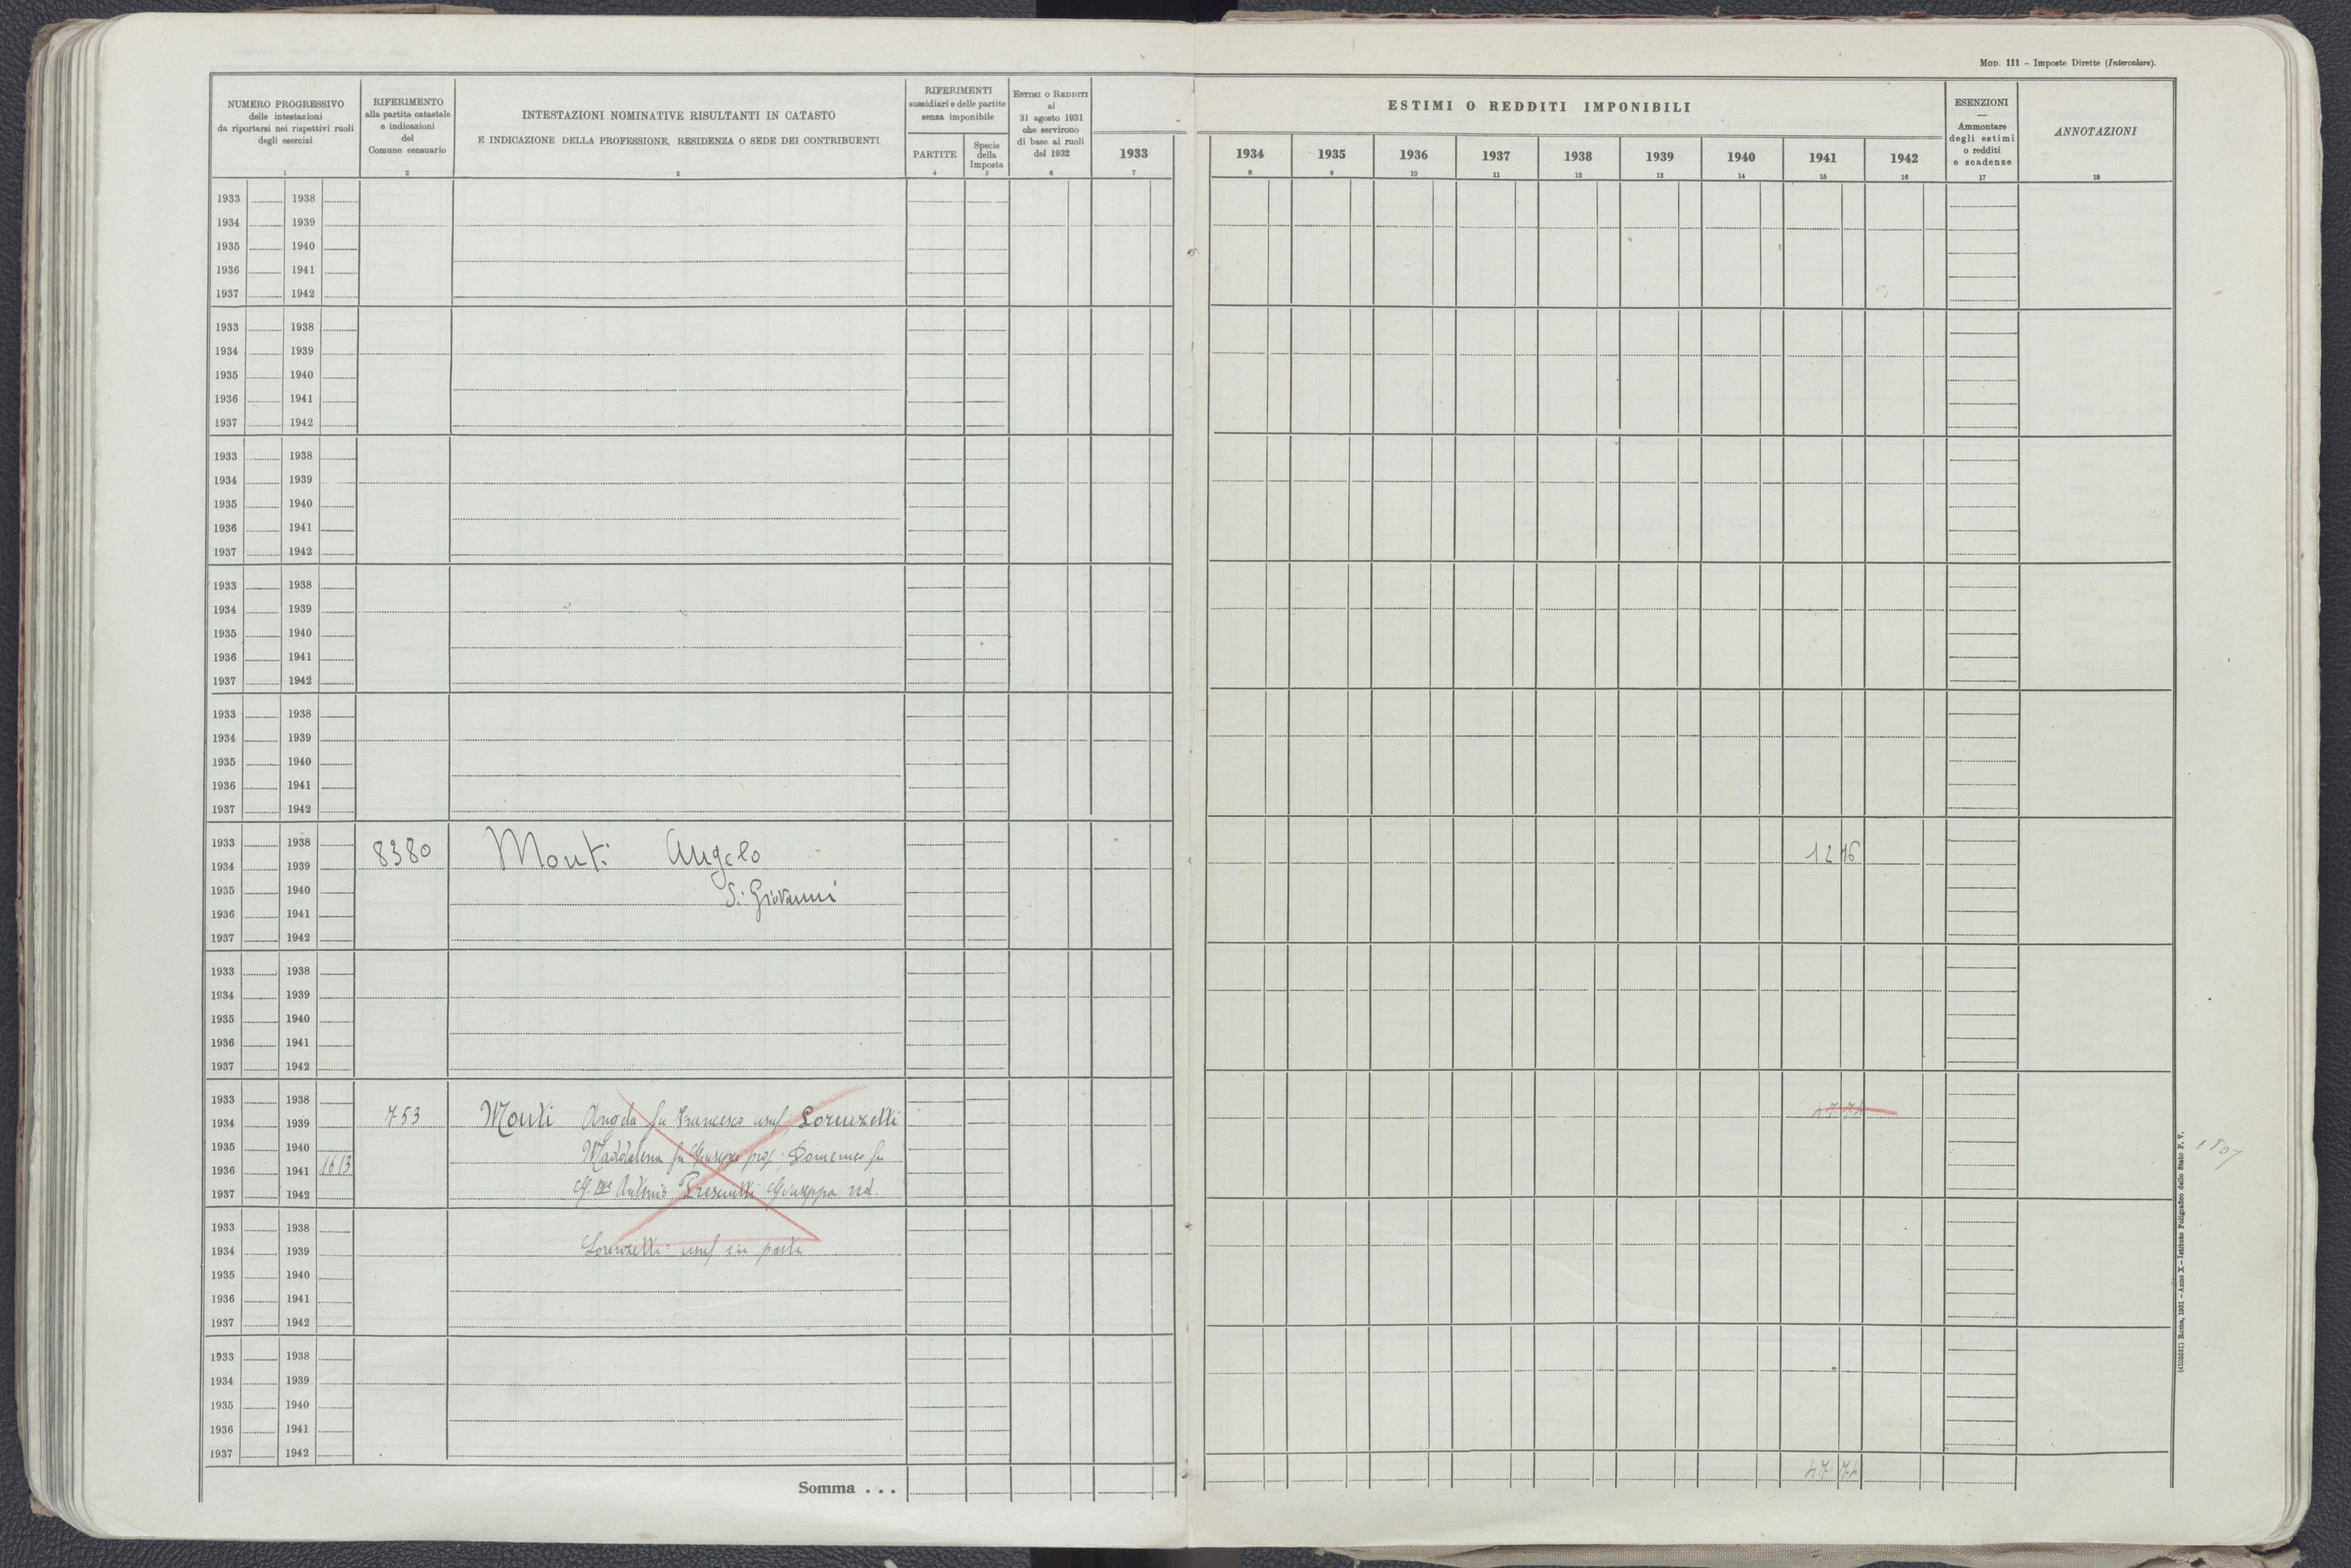 MOD. 111 – Imposte Dirette (Intercalare).
NUMERO PROGRESSIVO
delle intestazioni
da riportarsi nei rispettivi ruoli
degli esercizi
1
RIFERIMENTO
alla partita catastale
e indicazioni
del
Comune censuario
2
INTESTAZIONI NOMINATIVE RISULTANTI IN CATASTO
E INDICAZIONE DELLA PROFESSIONE, RESIDENZA O SEDE DEI CONTRIBUENTI
3
RIFERIMENTI
sussidiari e delle partite
senza imponibile
PARTITE
4
Specie
della
Imposta
5
ESTIMI O REDDITI
al
31 agosto 1931
che servirono
di base ai ruoli
del 1932
6
1933
7
ESTIMI O REDDITI IMPONIBILI
1934 1935 1936 1937 1938 1939 1940 1941 1942
8 9 10 11 12 13 14 15 16
ESENZIONI
—
Ammontare
degli estimi
o redditi
e scadenze
17
ANNOTAZIONI
18
1933 1938
1934 1939
1935 1940
1936 1941
1937 1942
1933 1938
1934 1939
1935 1940
1936 1941
1937 1942
1933 1938
1934 1939
1935 1940
1936 1941
1937 1942
1933 1938
1934 1939
1935 1940
1936 1941
1937 1942
1933 1938
1934 1939
1935 1940
1936 1941
1937 1942
1933 1938
8380 Monti Angelo 12 16
1934 1939
1935 1940 Giovanni
1936 1941
1937 1942
1933 1938
1934 1939
1935 1940
1936 1941
1937 1942
1933 1938
753 Monti Angela fu Francesco usuf. Lorenzetti
1934 1939
1935 1940 Maddalena fu Giuseppe prop. Domenico fu
1936 1941 1613
1937 1942 Antonio Giuseppa ved.
1933 1938
1934 1939 Lorenzetti usuf in parte
1935 1940
1936 1941
1937 1942
1933 1938
1934 1939
1935 1940
1936 1941
1937 1942
Somma . . .
(4103581) Roma, 1931 – Anno X – Istituto Poligrafico dello Stato P. V.